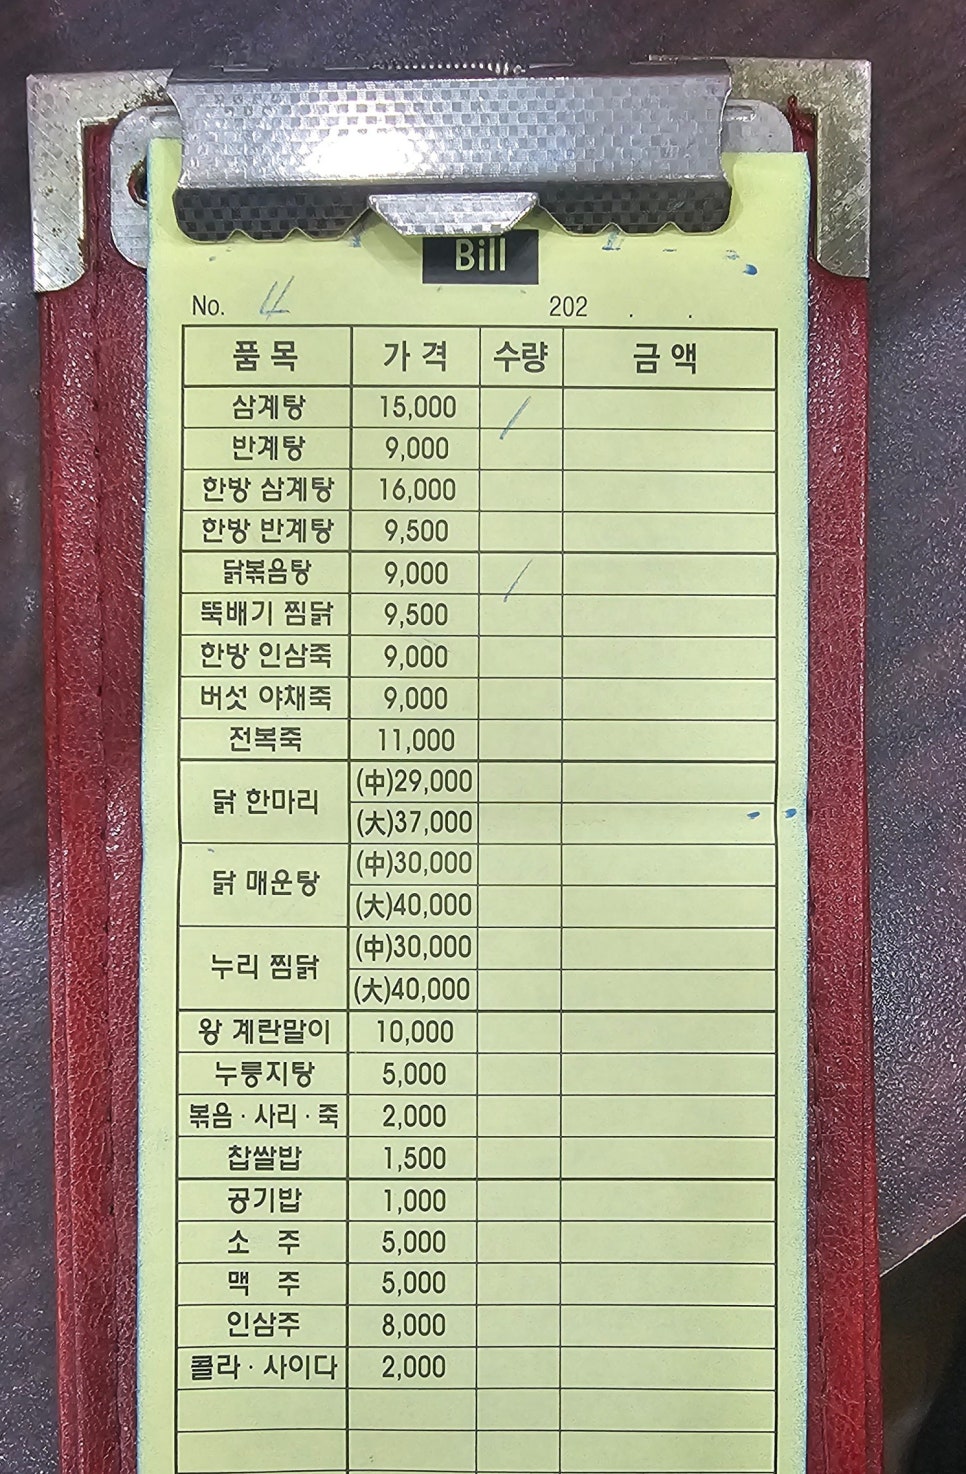 Bill
No. 4 202 . .
품목 가격 수량 금액
삼계탕 15,000 /
반계탕 9,000
한방 삼계탕 16,000
한방 반계탕 9,500
닭볶음탕 9,000 /
뚝배기 찜닭 9,500
한방 인삼죽 9,000
버섯 야채죽 9,000
전복죽 11,000
닭 한마리 (中)29,000
(大)37,000
닭 매운탕 (中)30,000
(大)40,000
누리 찜닭 (中)30,000
(大)40,000
왕 계란말이 10,000
누룽지탕 5,000
볶음·사리·죽 2,000
찹쌀밥 1,500
공기밥 1,000
소 주 5,000
맥 주 5,000
인삼주 8,000
콜라·사이다 2,000